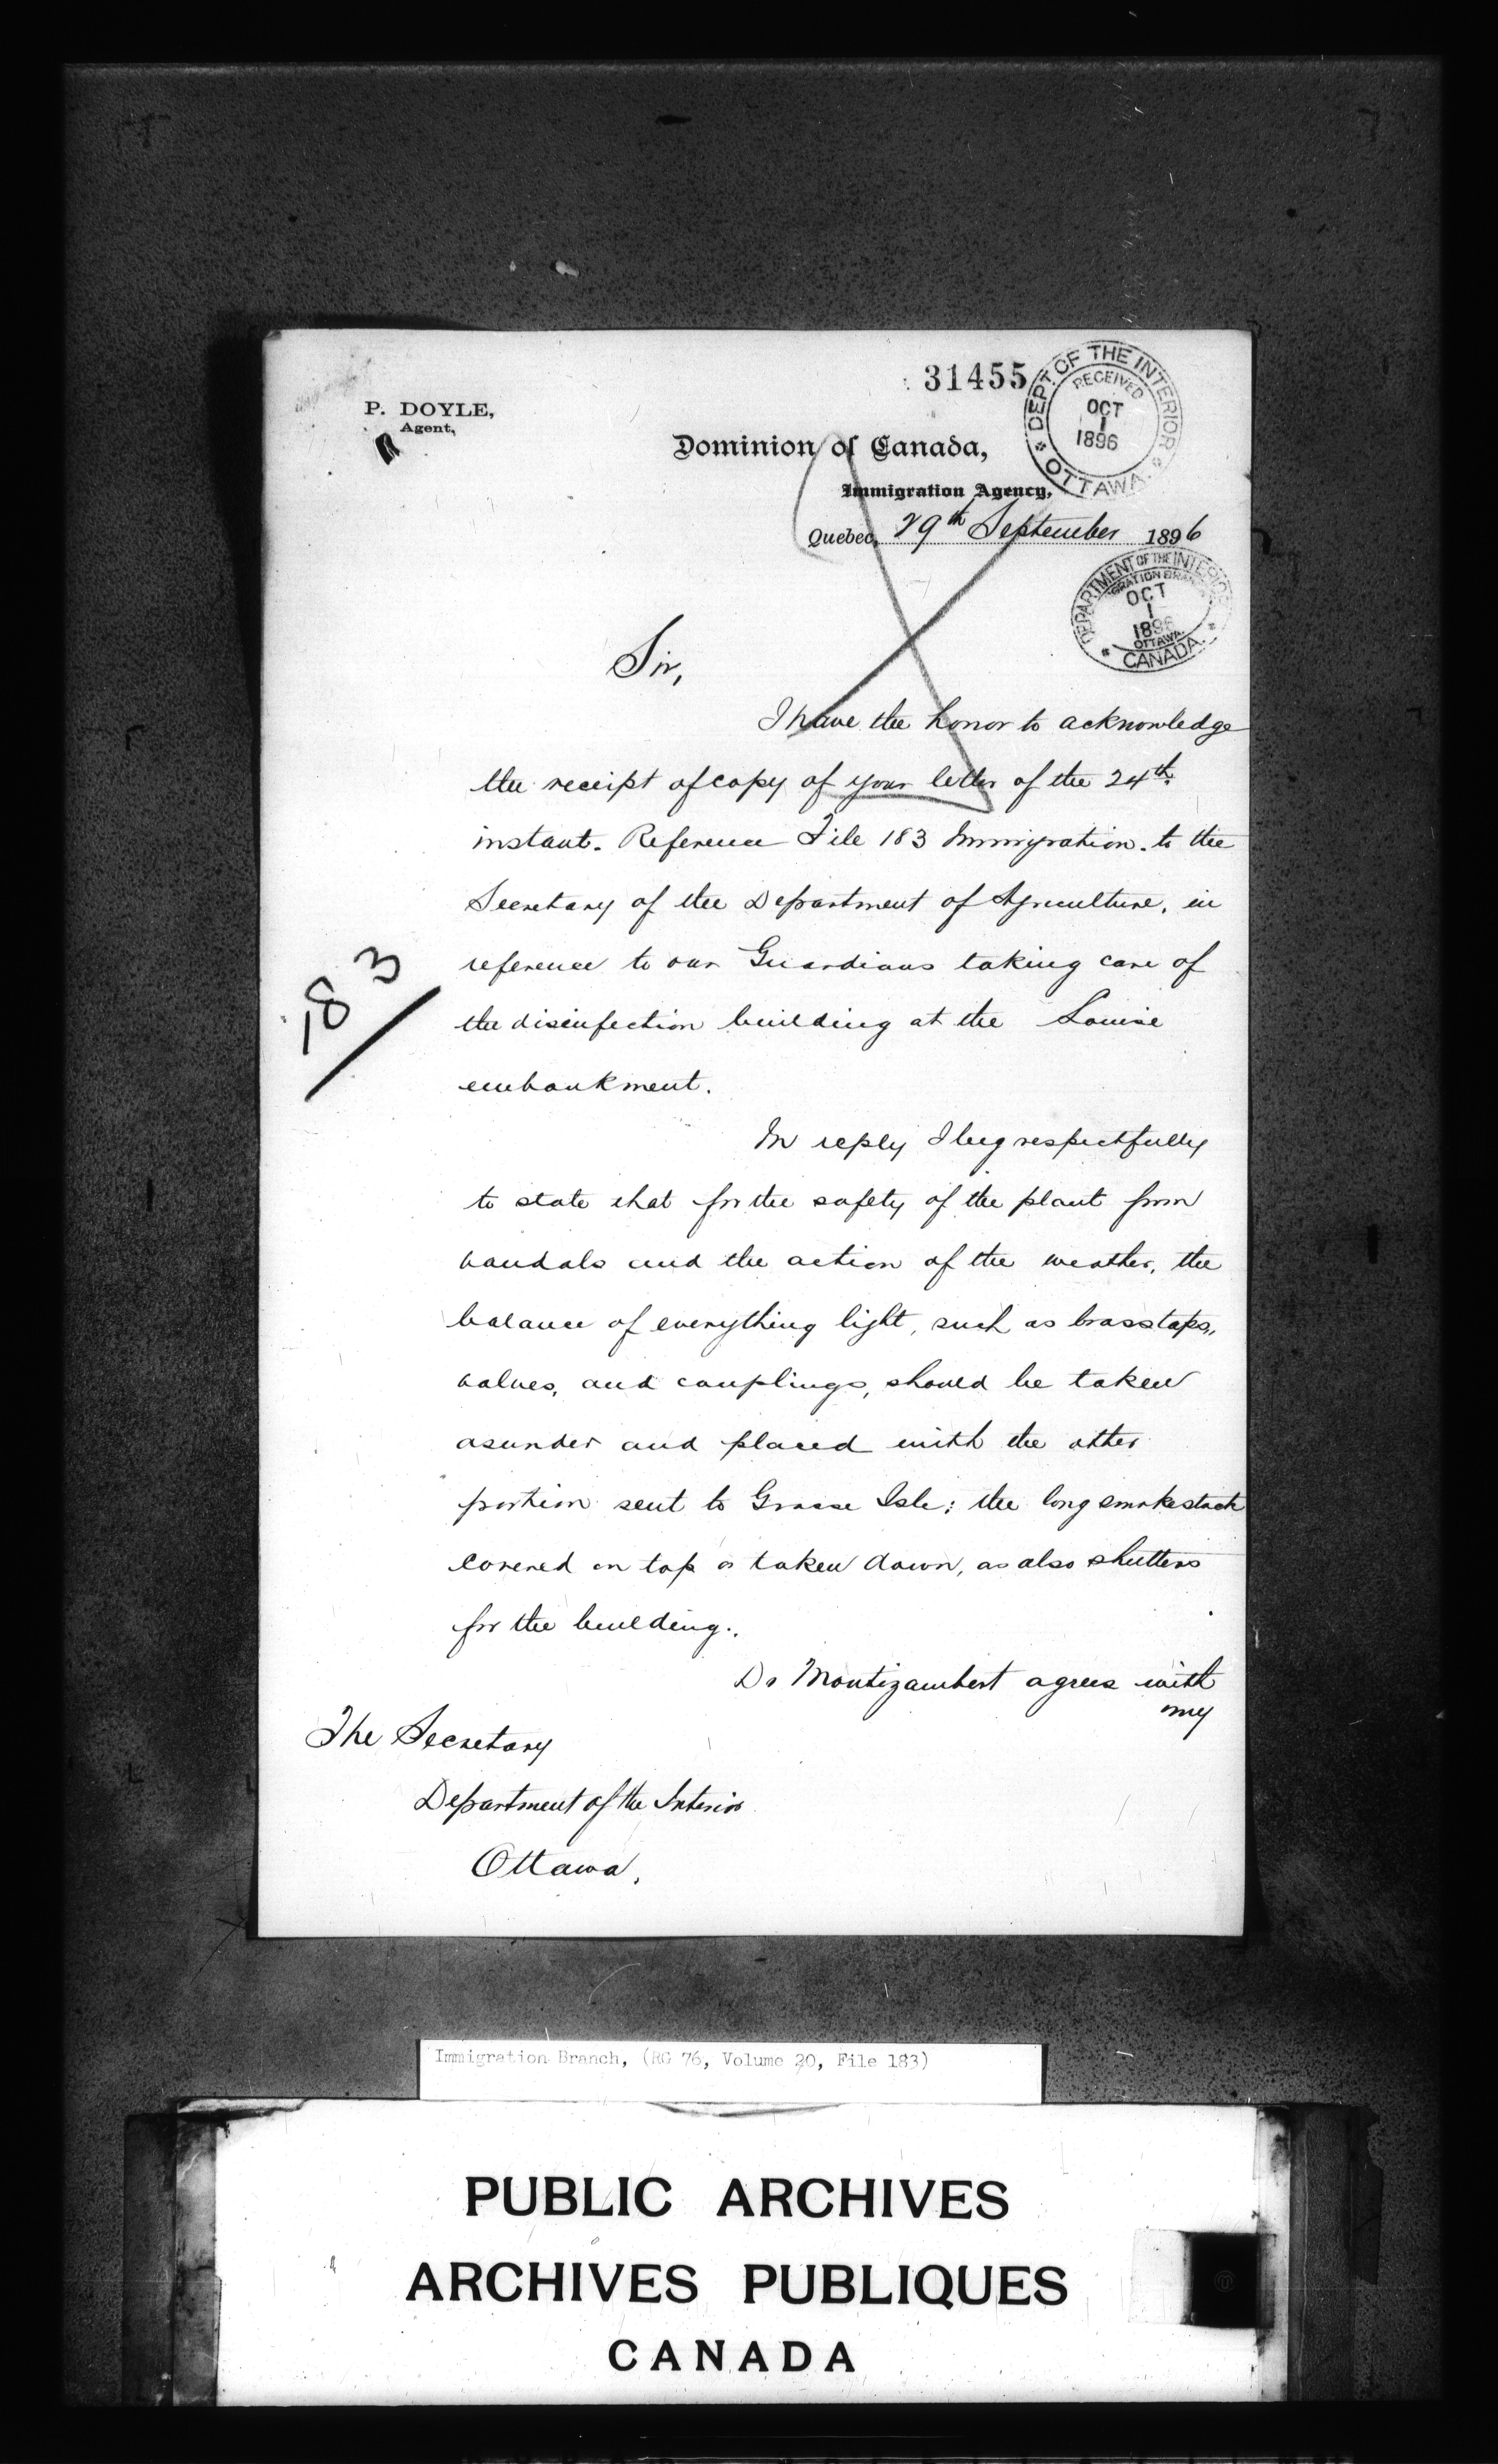 31455
DEPT. OF THE INTERIOR
RECEIVED
OCT
1
1896
OTTAWA.
P. DOYLE,
Agent,
Dominion of Canada,
Immigration Agency,
Quebec, 29th September 1896
DEPARTMENT OF THE INTERIOR
OCT
1
1896
OTTAWA
CANADA.
Sir,
I have the honor to acknowledge
the receipt of copy of your letter of the 24th
instant. Reference File 183 Immigration. to the
Secretary of the Department of Agriculture, in
reference to our Guardians taking care of
183
the disinfection building at the Louise
embankment.
In reply I beg respectfully
to state that for the safety of the plant from
vandals and the action of the weather, the
balance of everything light, such as brass taps,
valves, and couplings, should be taken
asunder and placed with the other
portion sent to Grosse Isle; the long smokestack
covered on top or taken down, as also shutters
for the building.
Dr Montizambert agrees with
my
The Secretary
Department of the Interior
Ottawa.
Immigration Branch, (RG 76, Volume 20, File 183)
PUBLIC ARCHIVES
ARCHIVES PUBLIQUES
CANADA